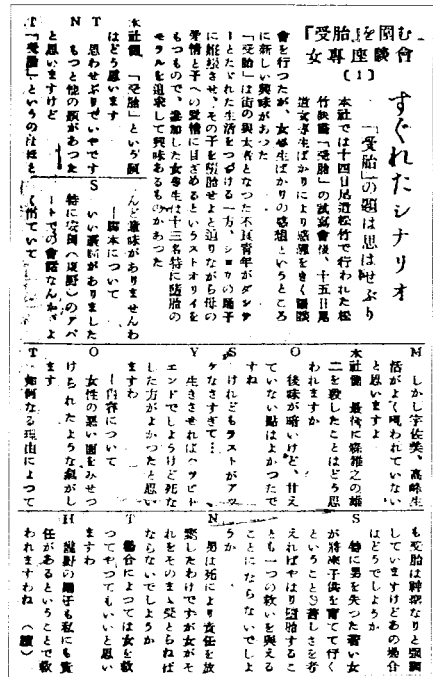 『受胎』を囲む
女専座談会
(1)
すぐれたシナリオ
「受胎」の題は思はせぶり
本社では十四日尾道松竹で行われた松
竹映画「受胎」の試写会後、十五日尾
道女専生ばかりにより感想をきく座談
会を行つたが、女専生ばかりの感想というところ
に新しい興味があつた
「受胎」は街の与太者となつた不良青年がダンサ
ーとただれた生活をつづける一方、ショウの踊子
に姙娠させ、その子を堕胎せよと迫りながら母の
愛情と子への愛情に目ざめるというストオリイを
もつもので、参加した女専生は十三名特に堕胎の
モラルを追求して興味あるものがあつた
本社側 「受胎」という題
はどう思います
T 思わせぶりでいやです
N もつと他の題があつた
と思いますけど
T 「受胎」というのはほと
んど意味がありませんわ
―脚本について
S いい脚本がありました
のア
パートでの会話なんかよ
く出ていて
M しかし宇佐美、高峰生
活がよく現われていない
と思いますよ
本社側 最後に
二を殺したことはどう思
われますか
O 後味が暗いけど、甘え
ていない点はよかつたで
すね
S けれどもラストがアツ
ケなさすぎて…
Y 生きさせればハツピイ
エンドでしようけど死な
した方がよかつたと思い
ますわ
―内容について
O 女性の悪い面をみせつ
けられたような気がし
ます
T 如何なる理由によつて
も受胎は神聖なりと強調
していますけどあの場合
はどうでしようか
S 特に男を失つた若い女
が将来子供を育てて行く
ということの苦しさを考
えればやはり堕胎するこ
とも一つの救いを与える
ことにならないでしよ
うか
N 男は死により責任を放
棄したわけですが女がそ
れをそのまま受とらねば
ならないでしようか
T 場合によつては女を救
つてやつてもいいと思い
ますわ
H 浅野の踊子も私にも責
任があるということで救
われますわね (続)